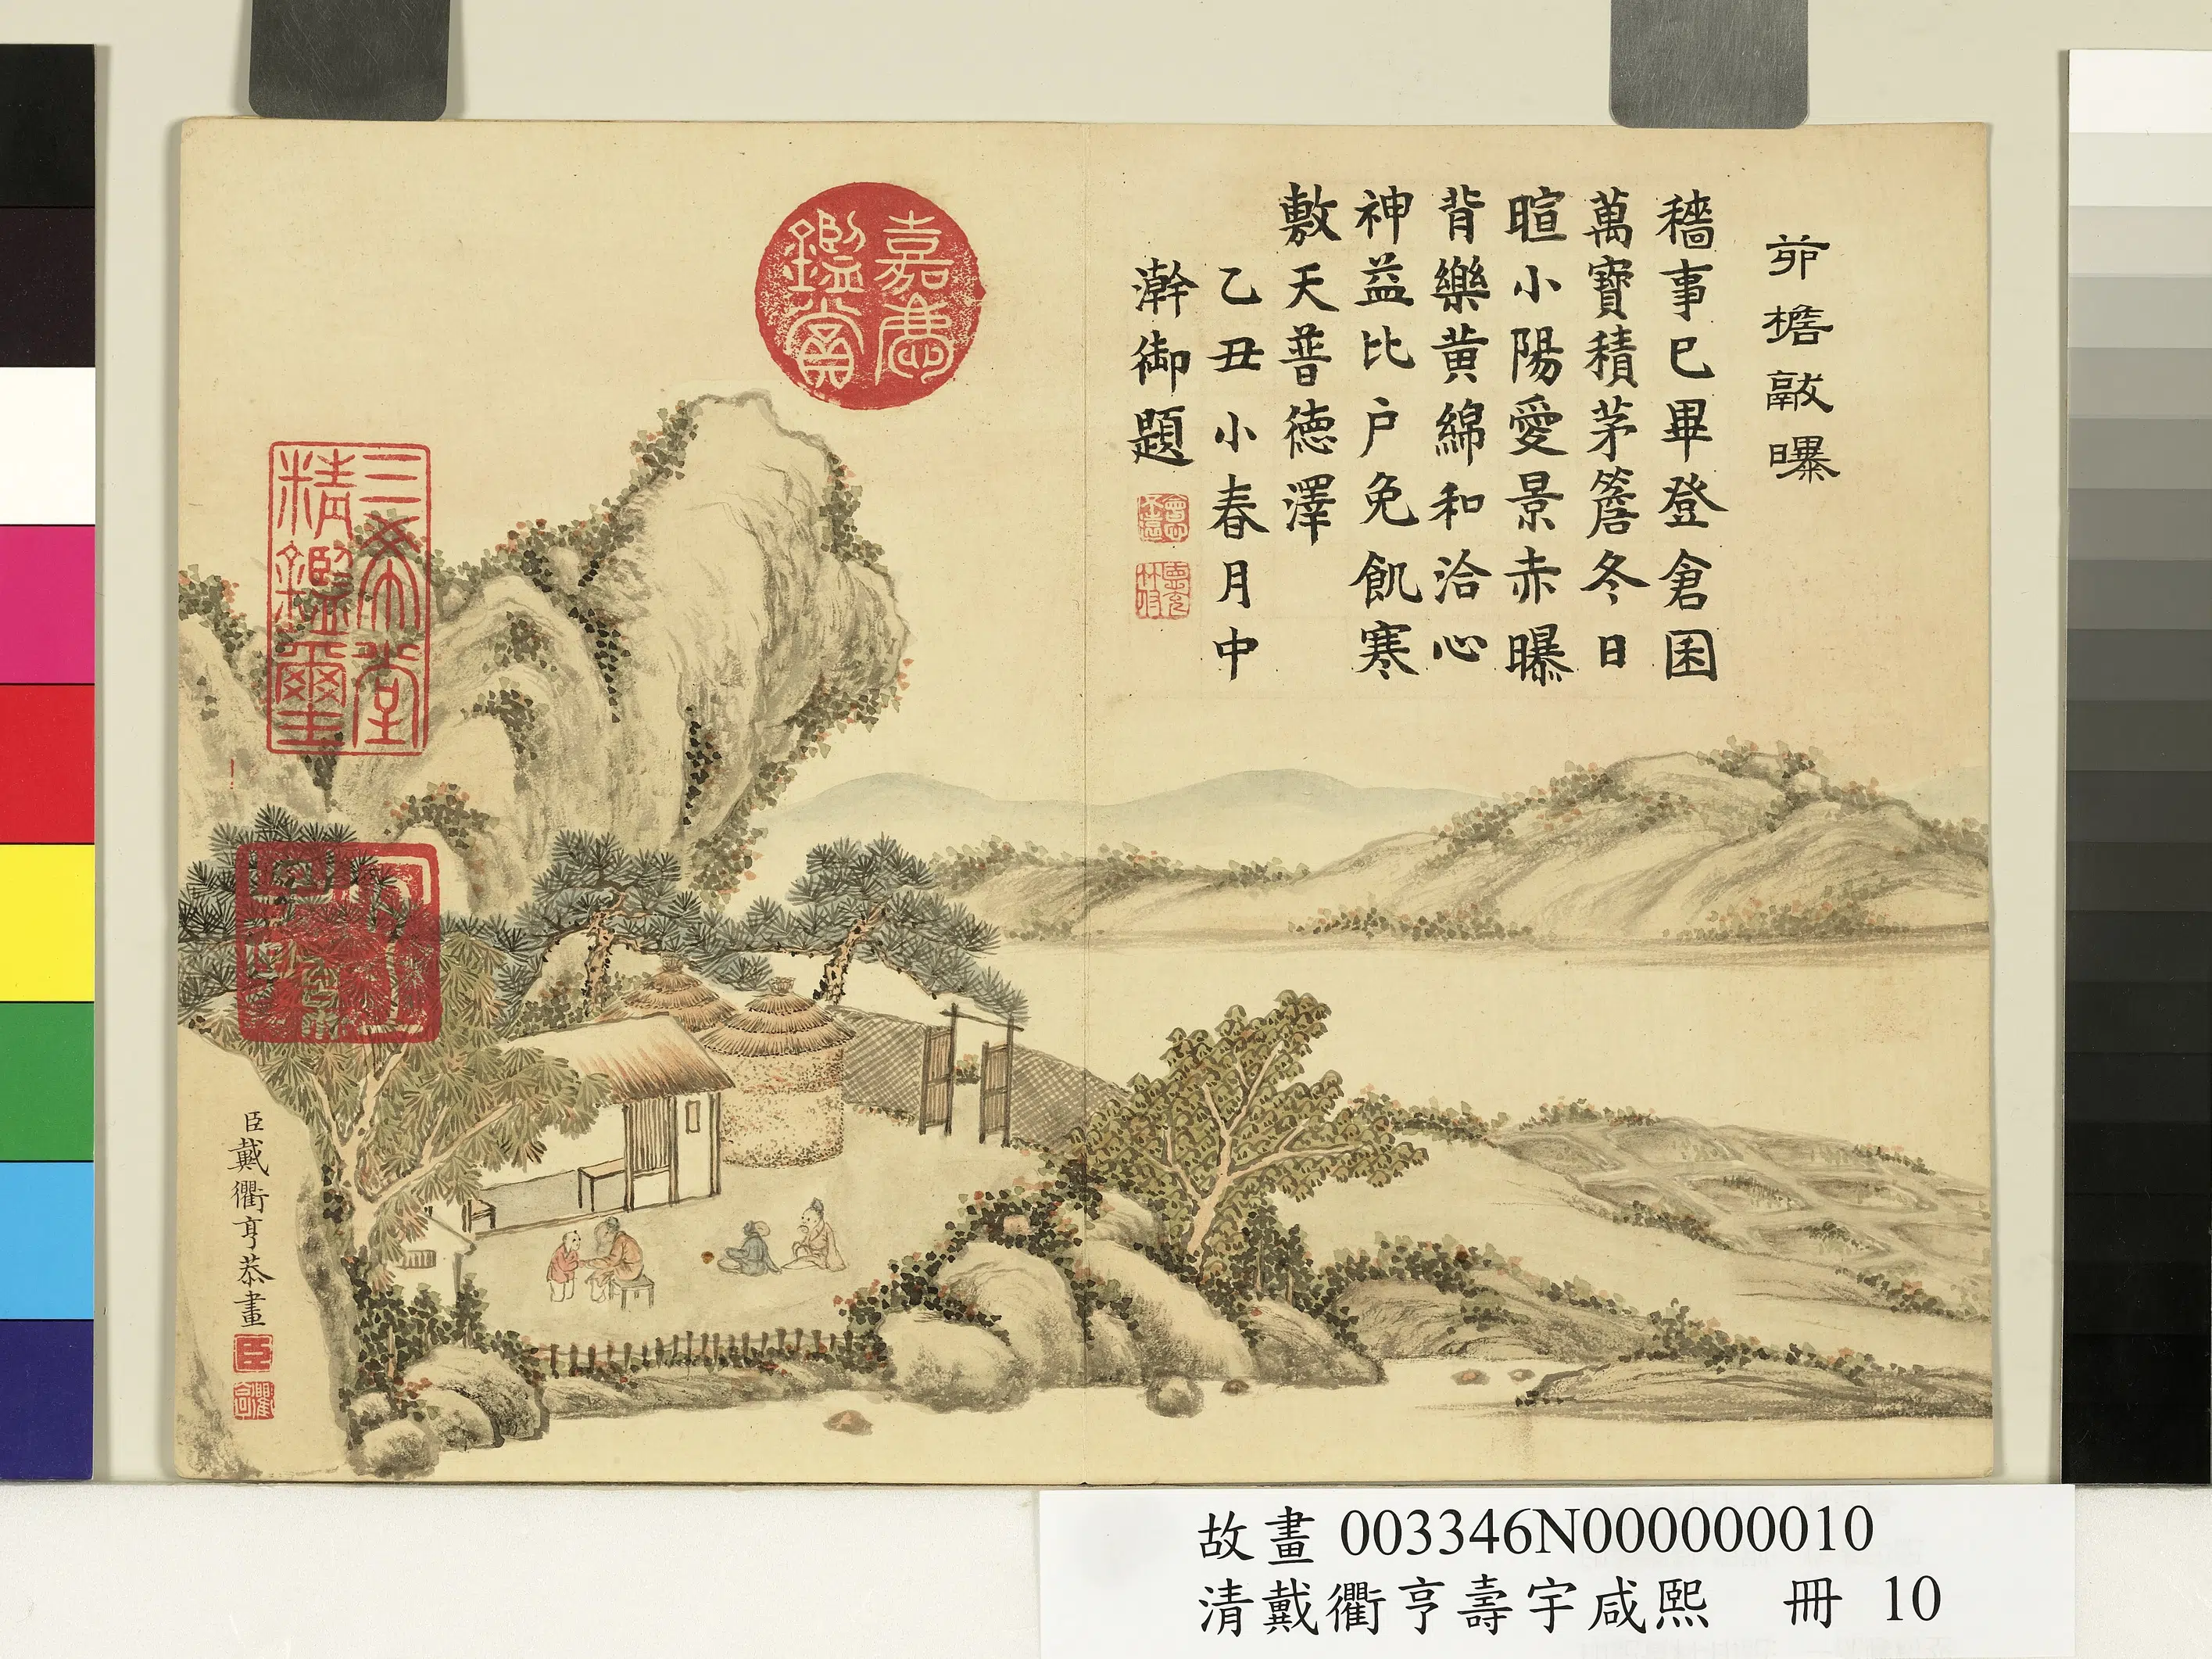 茆檐獻曝
穡事已畢登倉囷
萬寶積茅簷冬日
暄小陽愛景赤曝
背樂黄綿和洽心
神益比户免飢寒
敷天普德澤
乙丑小春月中
澣御題
會心不遠
德充符
嘉慶鑑賞
三希堂精鑑璽
宜子孫
臣戴衢亨恭畫
臣
衢亨
故畫 003346N000000010
清戴衢亨壽宇咸熙 冊 10